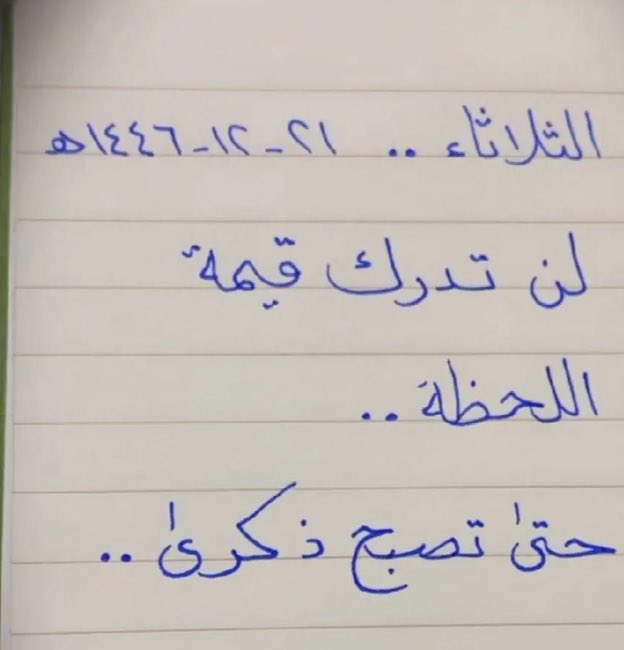 الثلاثاء .. ٢١-١٢-١٤٤٦هـ
لن تدرك قيمة
اللحظة ..
حتىٰ تصبح ذكرىٰ ..